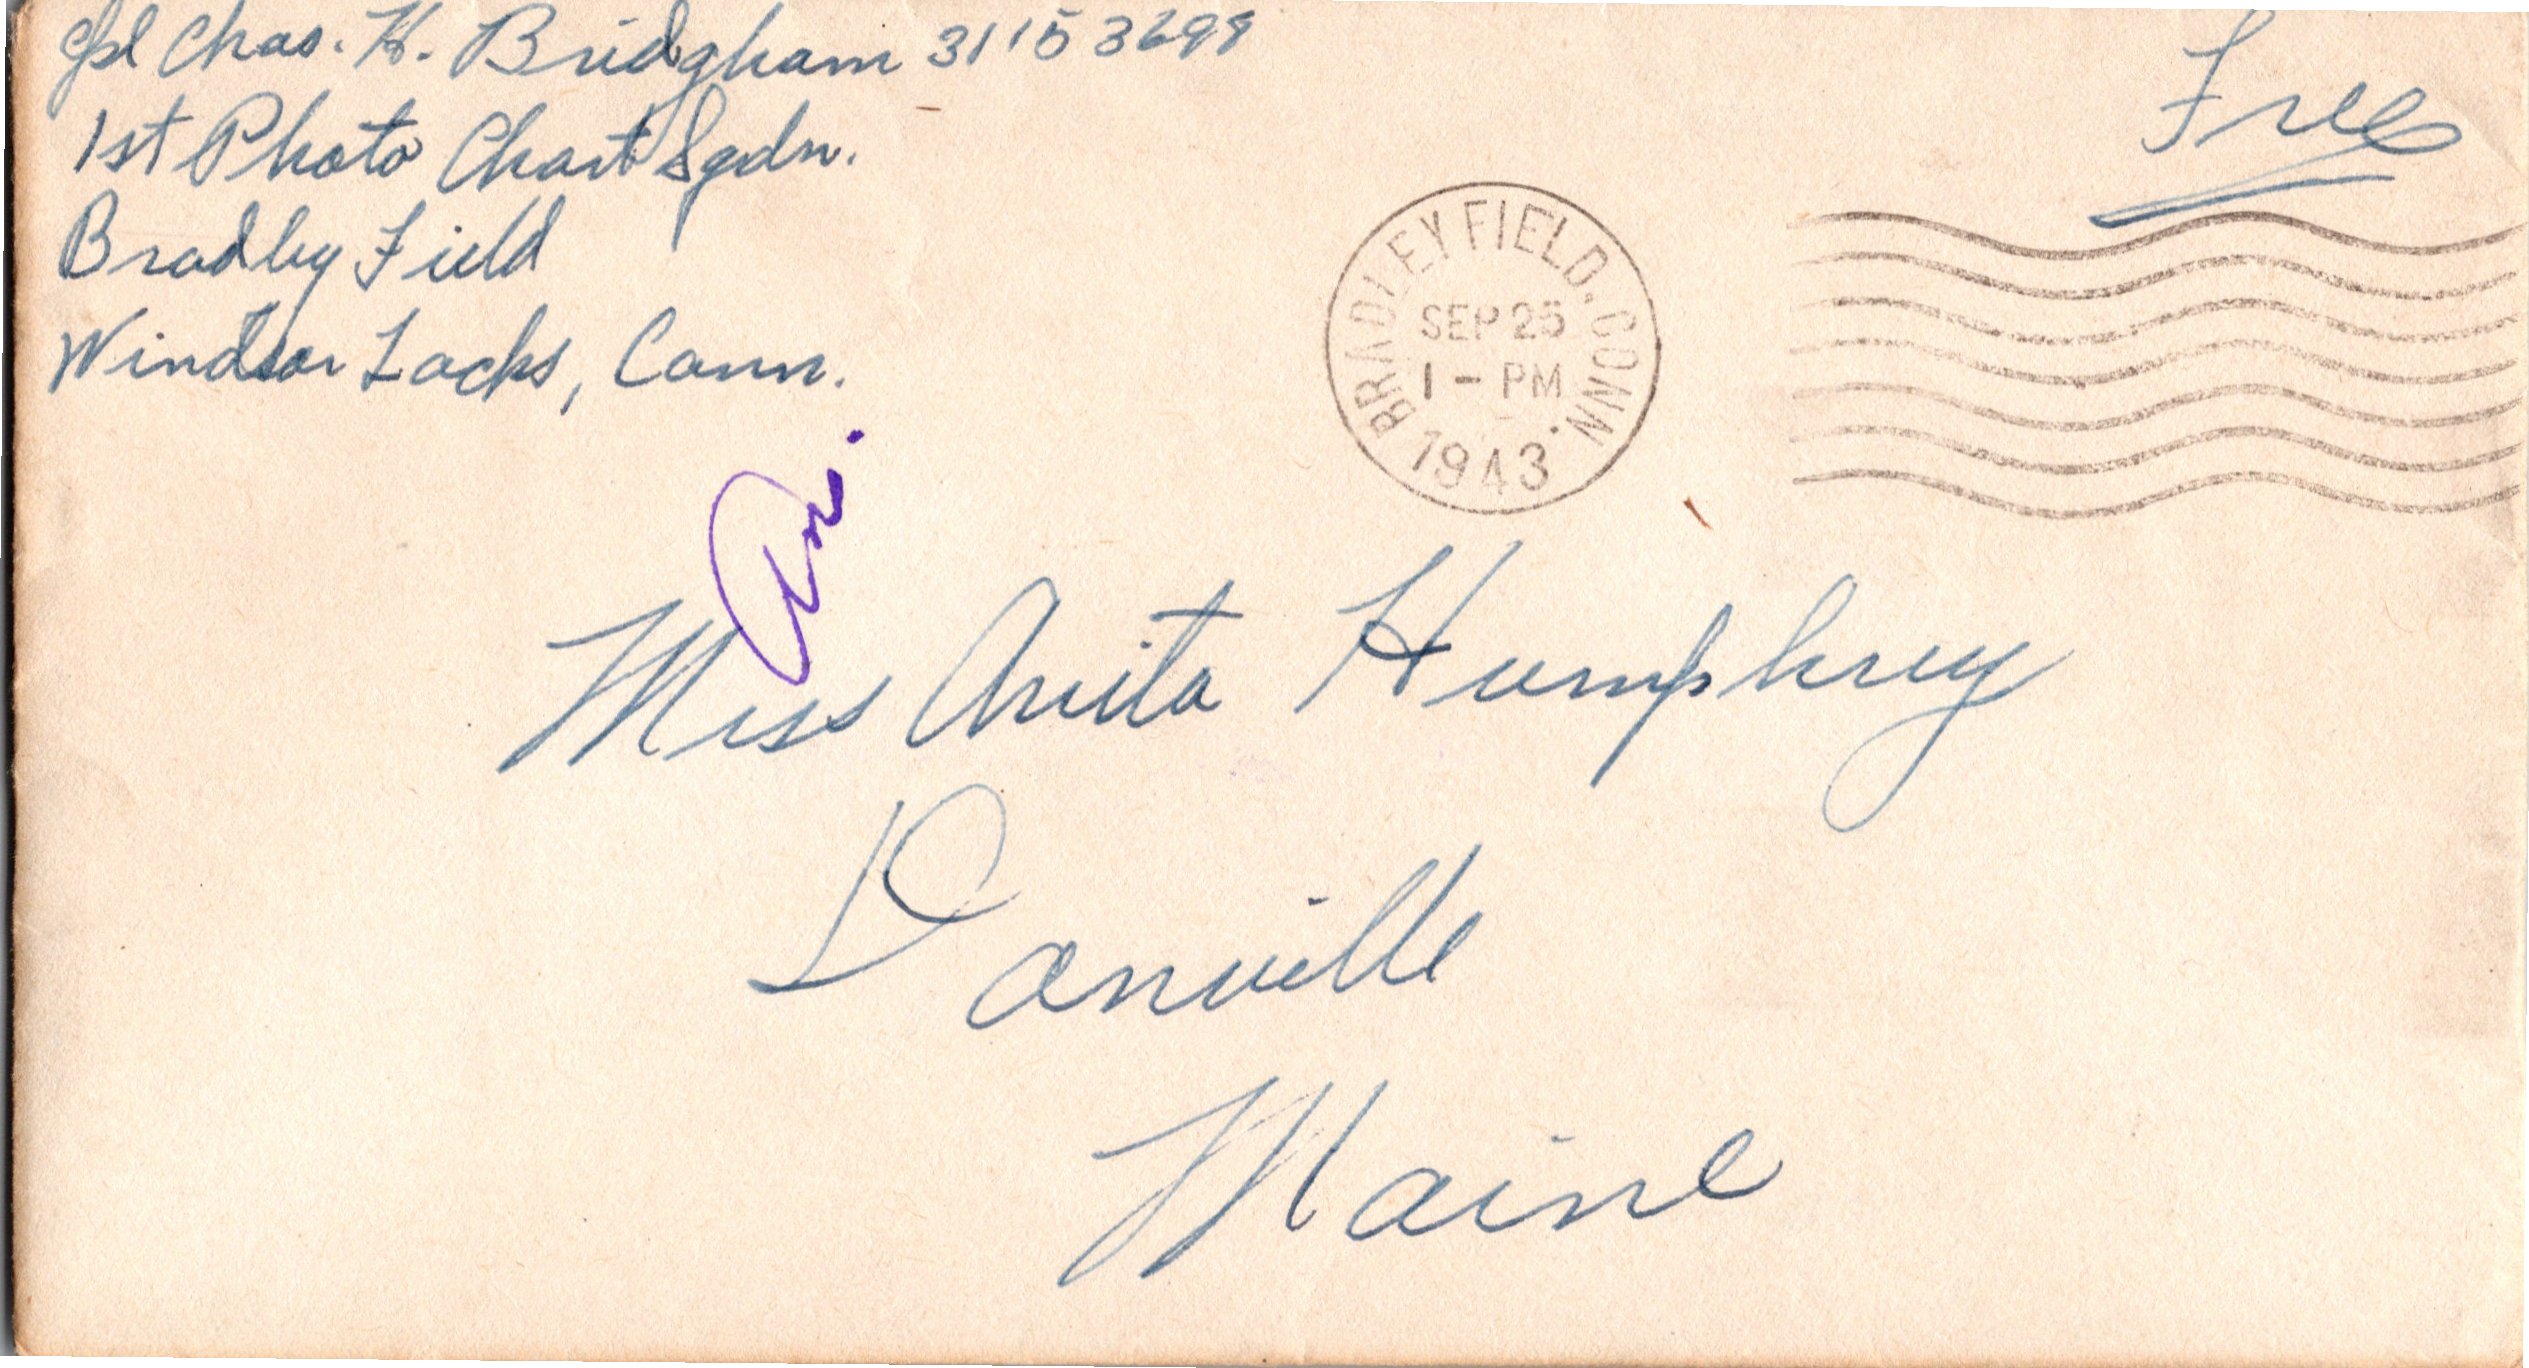 Cpl Chas. H. Bridgham 31153698
1st Photo Chart Sqdn.
Bradley Field
Windsor Locks, Conn.
Free
BRADLEY FIELD, CONN.
SEP 25
1 - PM
1943
Miss Anita Humphrey
Danville
Maine